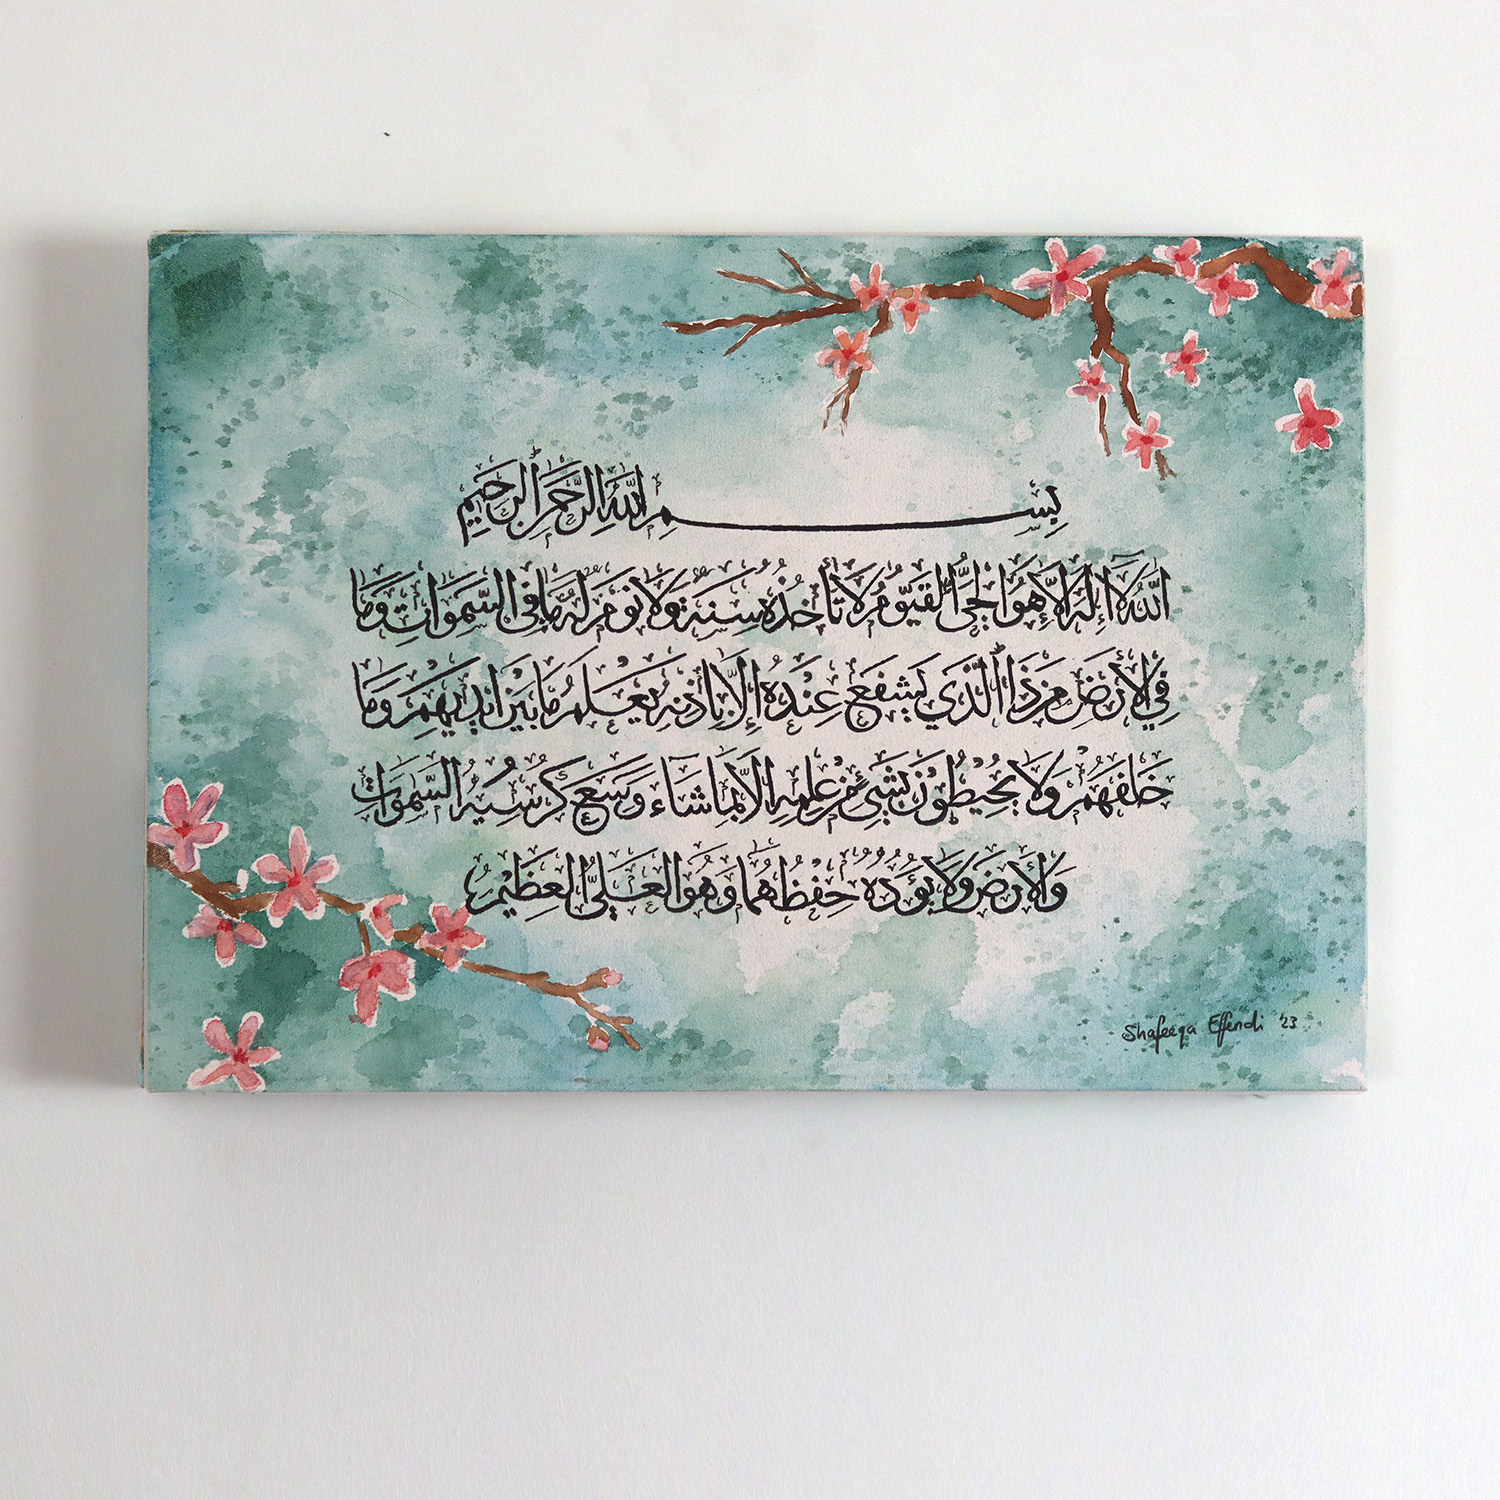 بِسْمِ اللَّهِ الرَّحْمَنِ الرَّحِيمِ
اللَّهُ لَا إِلَهَ إِلَّا هُوَ الْحَيُّ الْقَيُّومُ لَا تَأْخُذُهُ سِنَةٌ وَلَا نَوْمٌ لَهُ مَا فِي السَّمَوَاتِ وَمَا
فِي الْأَرْضِ مَنْ ذَا الَّذِي يَشْفَعُ عِنْدَهُ إِلَّا بِإِذْنِهِ يَعْلَمُ مَا بَيْنَ أَيْدِيهِمْ وَمَا
خَلْفَهُمْ وَلَا يُحِيطُونَ بِشَيْءٍ مِنْ عِلْمِهِ إِلَّا بِمَا شَاءَ وَسِعَ كُرْسِيُّهُ السَّمَوَاتِ
وَالْأَرْضَ وَلَا يَؤُدُهُ حِفْظُهُمَا وَهُوَ الْعَلِيُّ الْعَظِيمُ
Shafeeqa Effendi '23